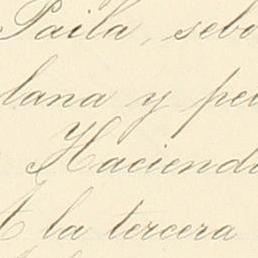 Paila, sebo
lana y pe
Haciend
A la tercera